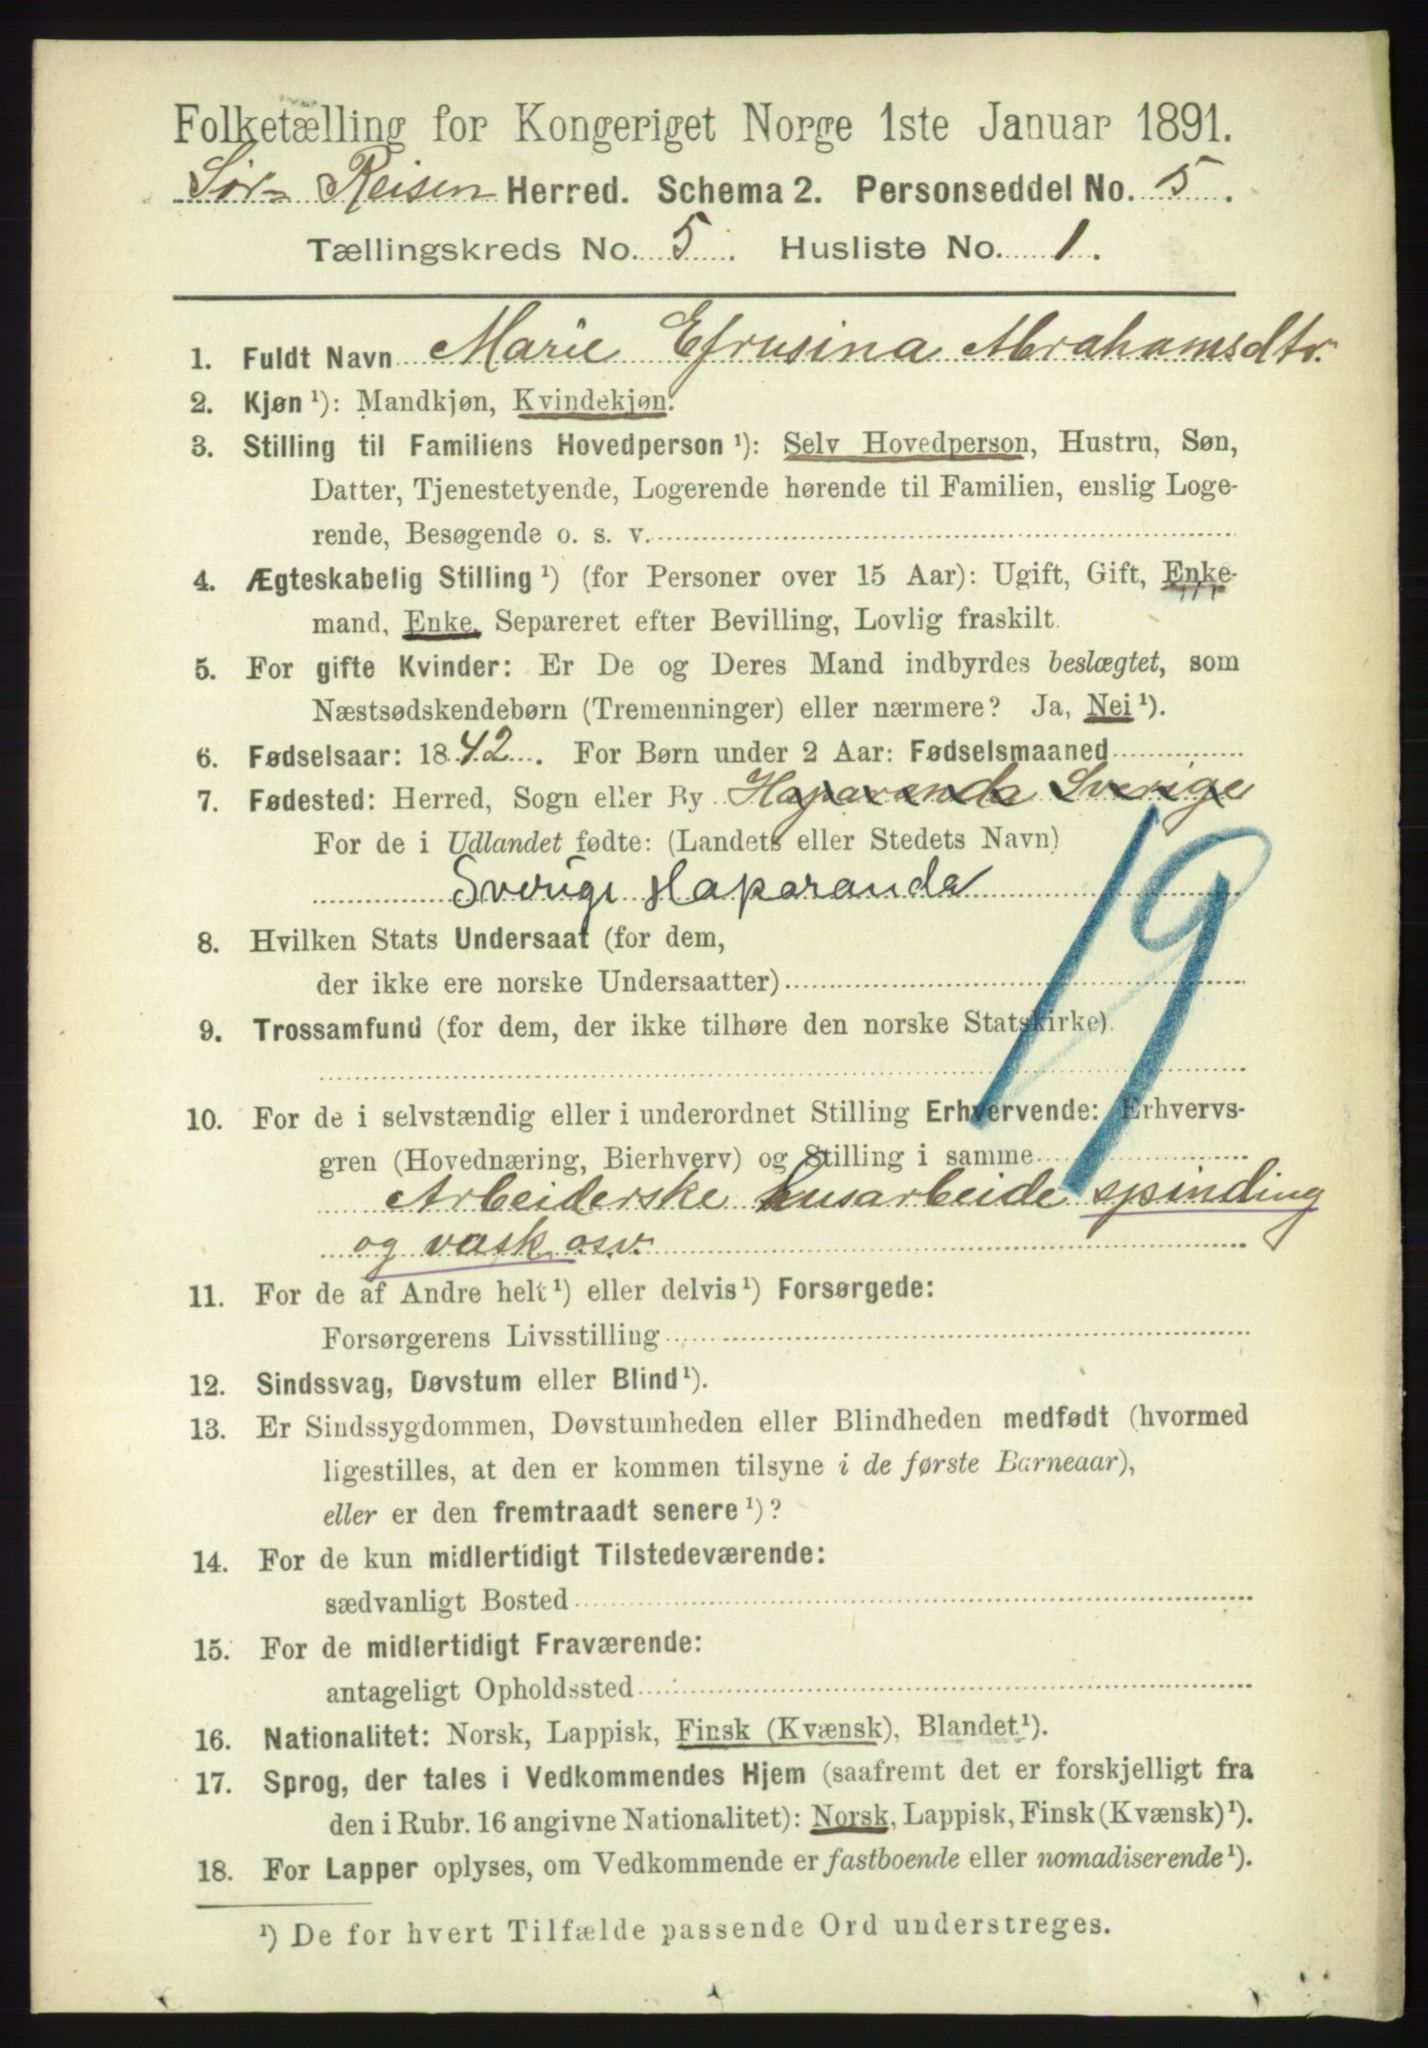 Folketælling for Kongeriget Norge 1ste Januar 1891.
Sør-Reisen Herred. Schema 2. Personseddel No. 5.
Tællingskreds No. 5. Husliste No. 1.
1. Fuldt Navn Marie Efrusina Abrahamsdtr.
2. Kjøn ¹): Mandkjøn, Kvindekjøn.
3. Stilling til Familiens Hovedperson ¹): Selv Hovedperson, Hustru, Søn,
Datter, Tjenestetyende, Logerende hørende til Familien, enslig Loge-
rende, Besøgende o. s. v.
4. Ægteskabelig Stilling ¹) (for Personer over 15 Aar): Ugift, Gift, Enke-
mand, Enke, Separeret efter Bevilling, Lovlig fraskilt.
5. For gifte Kvinder: Er De og Deres Mand indbyrdes beslægtet, som
Næstsødskendebørn (Tremenninger) eller nærmere? Ja, Nei ¹).
6. Fødselsaar: 1842. For Børn under 2 Aar: Fødselsmaaned
7. Fødested: Herred, Sogn eller By Haparanda Sverige
For de i Udlandet fødte: (Landets eller Stedets Navn)
Sverige Haparanda
19
8. Hvilken Stats Undersaat (for dem,
der ikke ere norske Undersaatter)
9. Trossamfund (for dem, der ikke tilhøre den norske Statskirke).
10. For de i selvstændig eller i underordnet Stilling Erhvervende: Erhvervs-
gren (Hovednæring, Bierhverv) og Stilling i samme
Arbeiderske husarbeide spinding
og vask osv.
11. For de af Andre helt ¹) eller delvis ¹) Forsørgede:
Forsørgerens Livsstilling
12. Sindssvag, Døvstum eller Blind ¹).
13. Er Sindssygdommen, Døvstumheden eller Blindheden medfødt (hvormed
ligestilles, at den er kommen tilsyne i de første Barneaar),
eller er den fremtraadt senere ¹)?
14. For de kun midlertidigt Tilstedeværende:
sædvanligt Bosted
15. For de midlertidigt Fraværende:
antageligt Opholdssted
16. Nationalitet: Norsk, Lappisk, Finsk (Kvænsk), Blandet ¹).
17. Sprog, der tales i Vedkommendes Hjem (saafremt det er forskjelligt fra
den i Rubr. 16 angivne Nationalitet): Norsk, Lappisk, Finsk (Kvænsk) ¹).
18. For Lapper oplyses, om Vedkommende er fastboende eller nomadiserende ¹).
¹) De for hvert Tilfælde passende Ord understreges.